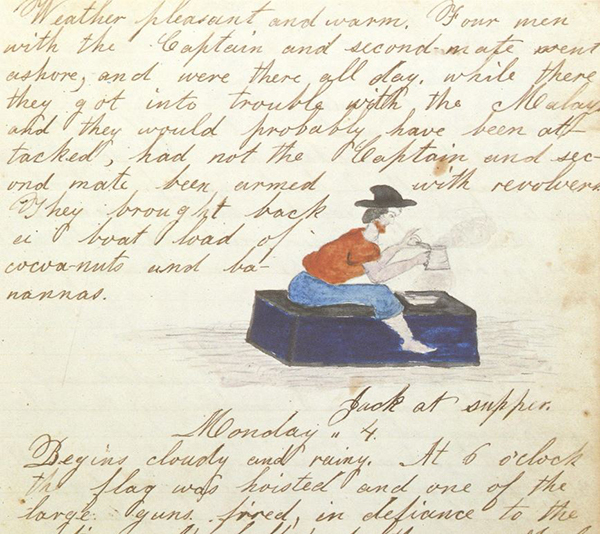 Weather pleasant and warm. Four men
with the Captain and second-mate went
ashore, and were there all day. while there
they got into trouble with the Malays
and they would probably have been at-
tacked, had not the Captain and sec-
ond mate been armed with revolvers
They brought back
a boat load of
cocoa-nuts and ba-
nannas.
Jack at supper.
Monday " 4.
Begins cloudy and rainy. At 6 o'clock
the flag was hoisted and one of the
large guns fired, in defiance to the